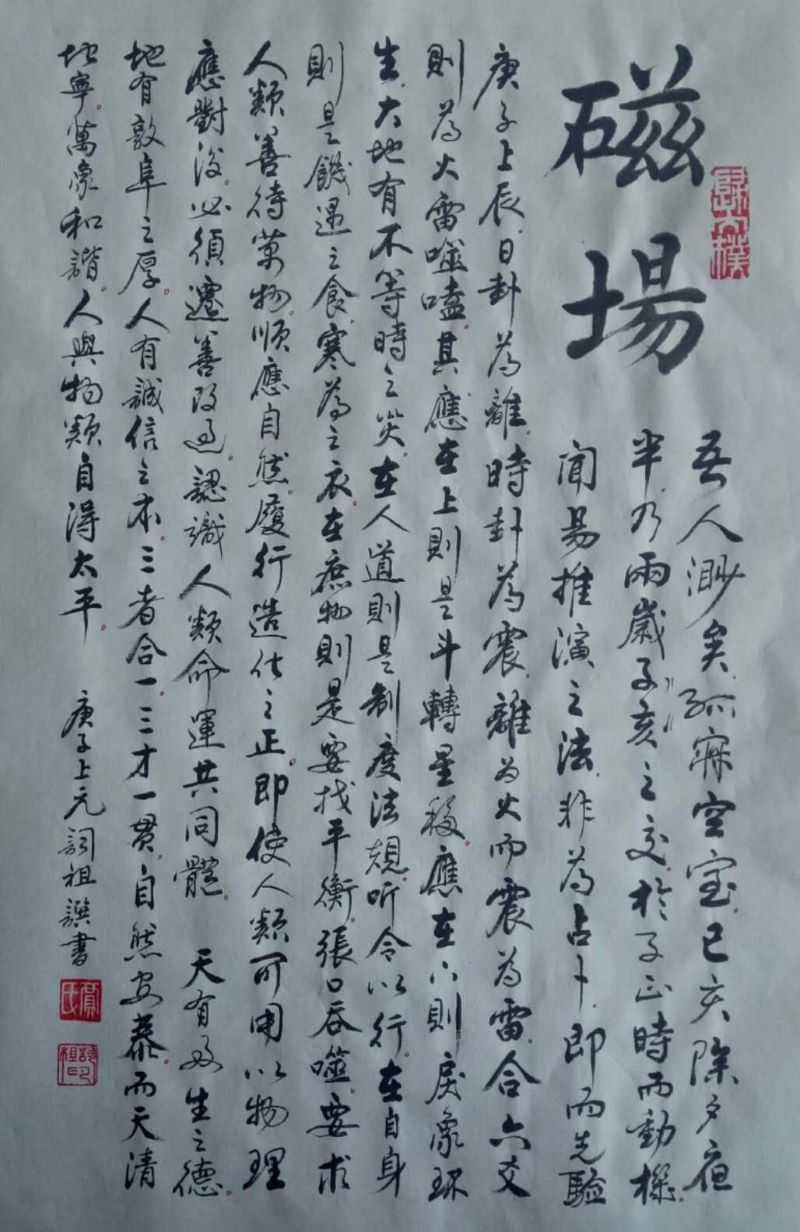 磁場
吾人渺矣孤寂空室己亥除夕夜
半乃兩歲子亥之交於子正時而動機
闻易推演之法非為占卜即而先驗
庚子上辰日卦為離時卦為震離为火而震為雷合六爻
則為火雷噬嗑其應在上則是斗轉星移應在下則戾象環
生大地有不等時之災在人道則是制度法規听令以行在自身
則是饑遇之食寒為之衣在庶物則是要找平衡張口吞噬要求
人類善待萬物順應自然履行造化之正即使人類可用以物理
應對後必須遷善改過認識人類命運共同體 天有好生之德
地有敦阜之厚人有誠信之本三者合一三才一貫自然安泰而天清
地寧萬象和諧人與物類自得太平 庚子上元詞祖譔書